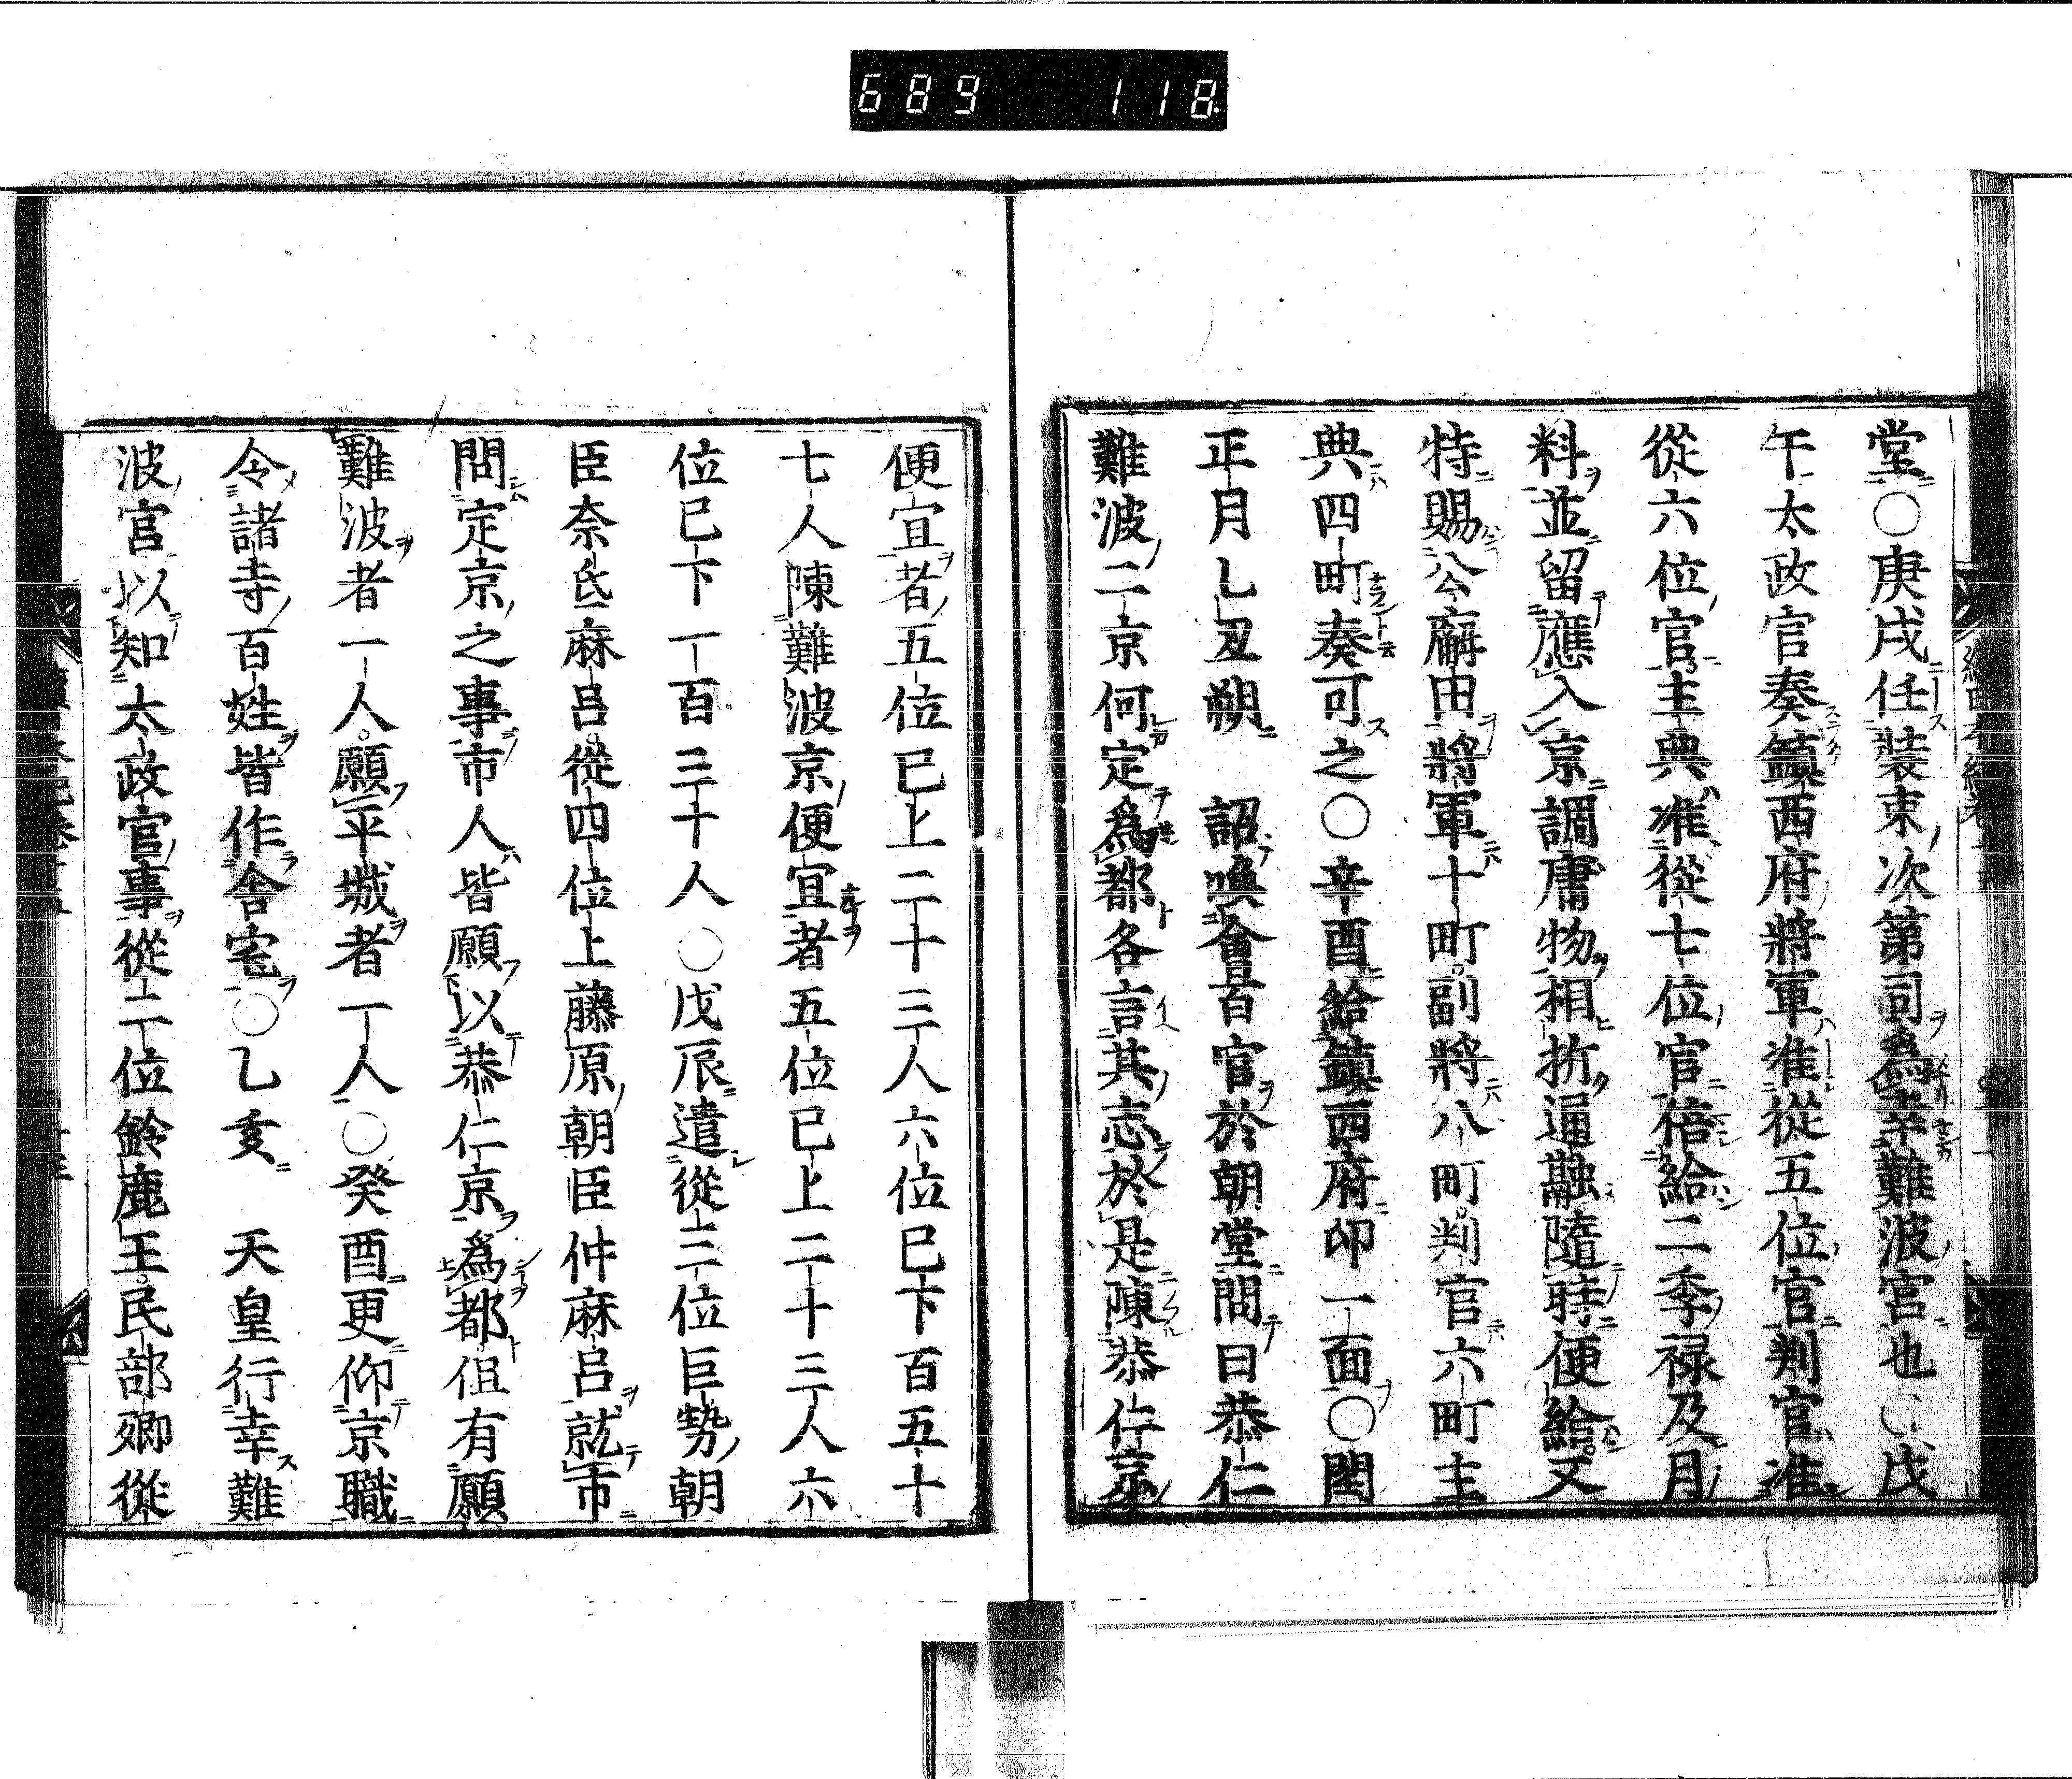 689 118
堂○庚戌任裝束次第司爲幸難波宮也○戊
午太政官奏鎮西府將軍准從五位官判官准
從六位官主典准從七位官倍給二季禄及月
料並留應入京調庸物相折通融隨時便給又
特賜公廨田將軍十町副將八町判官六町主
典四町奏可之○辛酉給鎮西府印一面○閏
正月乙丑朔　詔喚會百官於朝堂問曰恭仁
難波二京何定爲都各言其志於是陳恭仁京
便宜者五位已上二十三人六位已下百五十
七人陳難波京便宜者五位已上二十三人六
位已下一百三十人○戊辰遣從三位巨勢朝
臣奈氐麻呂從四位上藤原朝臣仲麻呂就市
問定京之事市人皆願以恭仁京爲都但有願
難波者一人願平城者一人○癸酉更仰京職
令諸寺百姓皆作舎宅○乙亥　天皇行幸難
波宮以知太政官事從二位鈴鹿王民部卿從